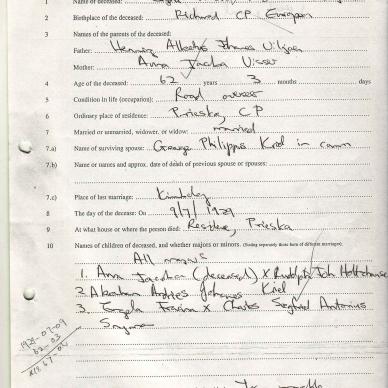 1 Name of deceased:
2 Birthplace of the deceased: Richmond CP European
3 Names of the parents of the deceased:
Father: Hermanus Albertus Johannes Viljoen
Mother: Anna Jacoba Visser
4 Age of the deceased: 62 years 3 months days
5 Condition in life (occupation): Road overseer
6 Ordinary place of residence: Prieska, CP
7 Married or unmarried, widower, or widow: married
7.a) Name of surviving spouse: George Philippus Kriel in comm
7.b) Name or names and approx. date of death of previous spouse or spouses:
7.c) Place of last marriage: Kimberley
8 The day of the decease: On 9/7/1929
9 At what house or where the person died: Prieska
10 Names of children of deceased, and whether majors or minors. (Stating separately those born of different marriages).
All majors
1. Anna Jacoba (deceased) x Rudolph Joh Holtzhausen
2. Abraham Andries Johannes Kriel
3. x Charles Siegfried Antonius
Snyman
1929-07-09
62-03